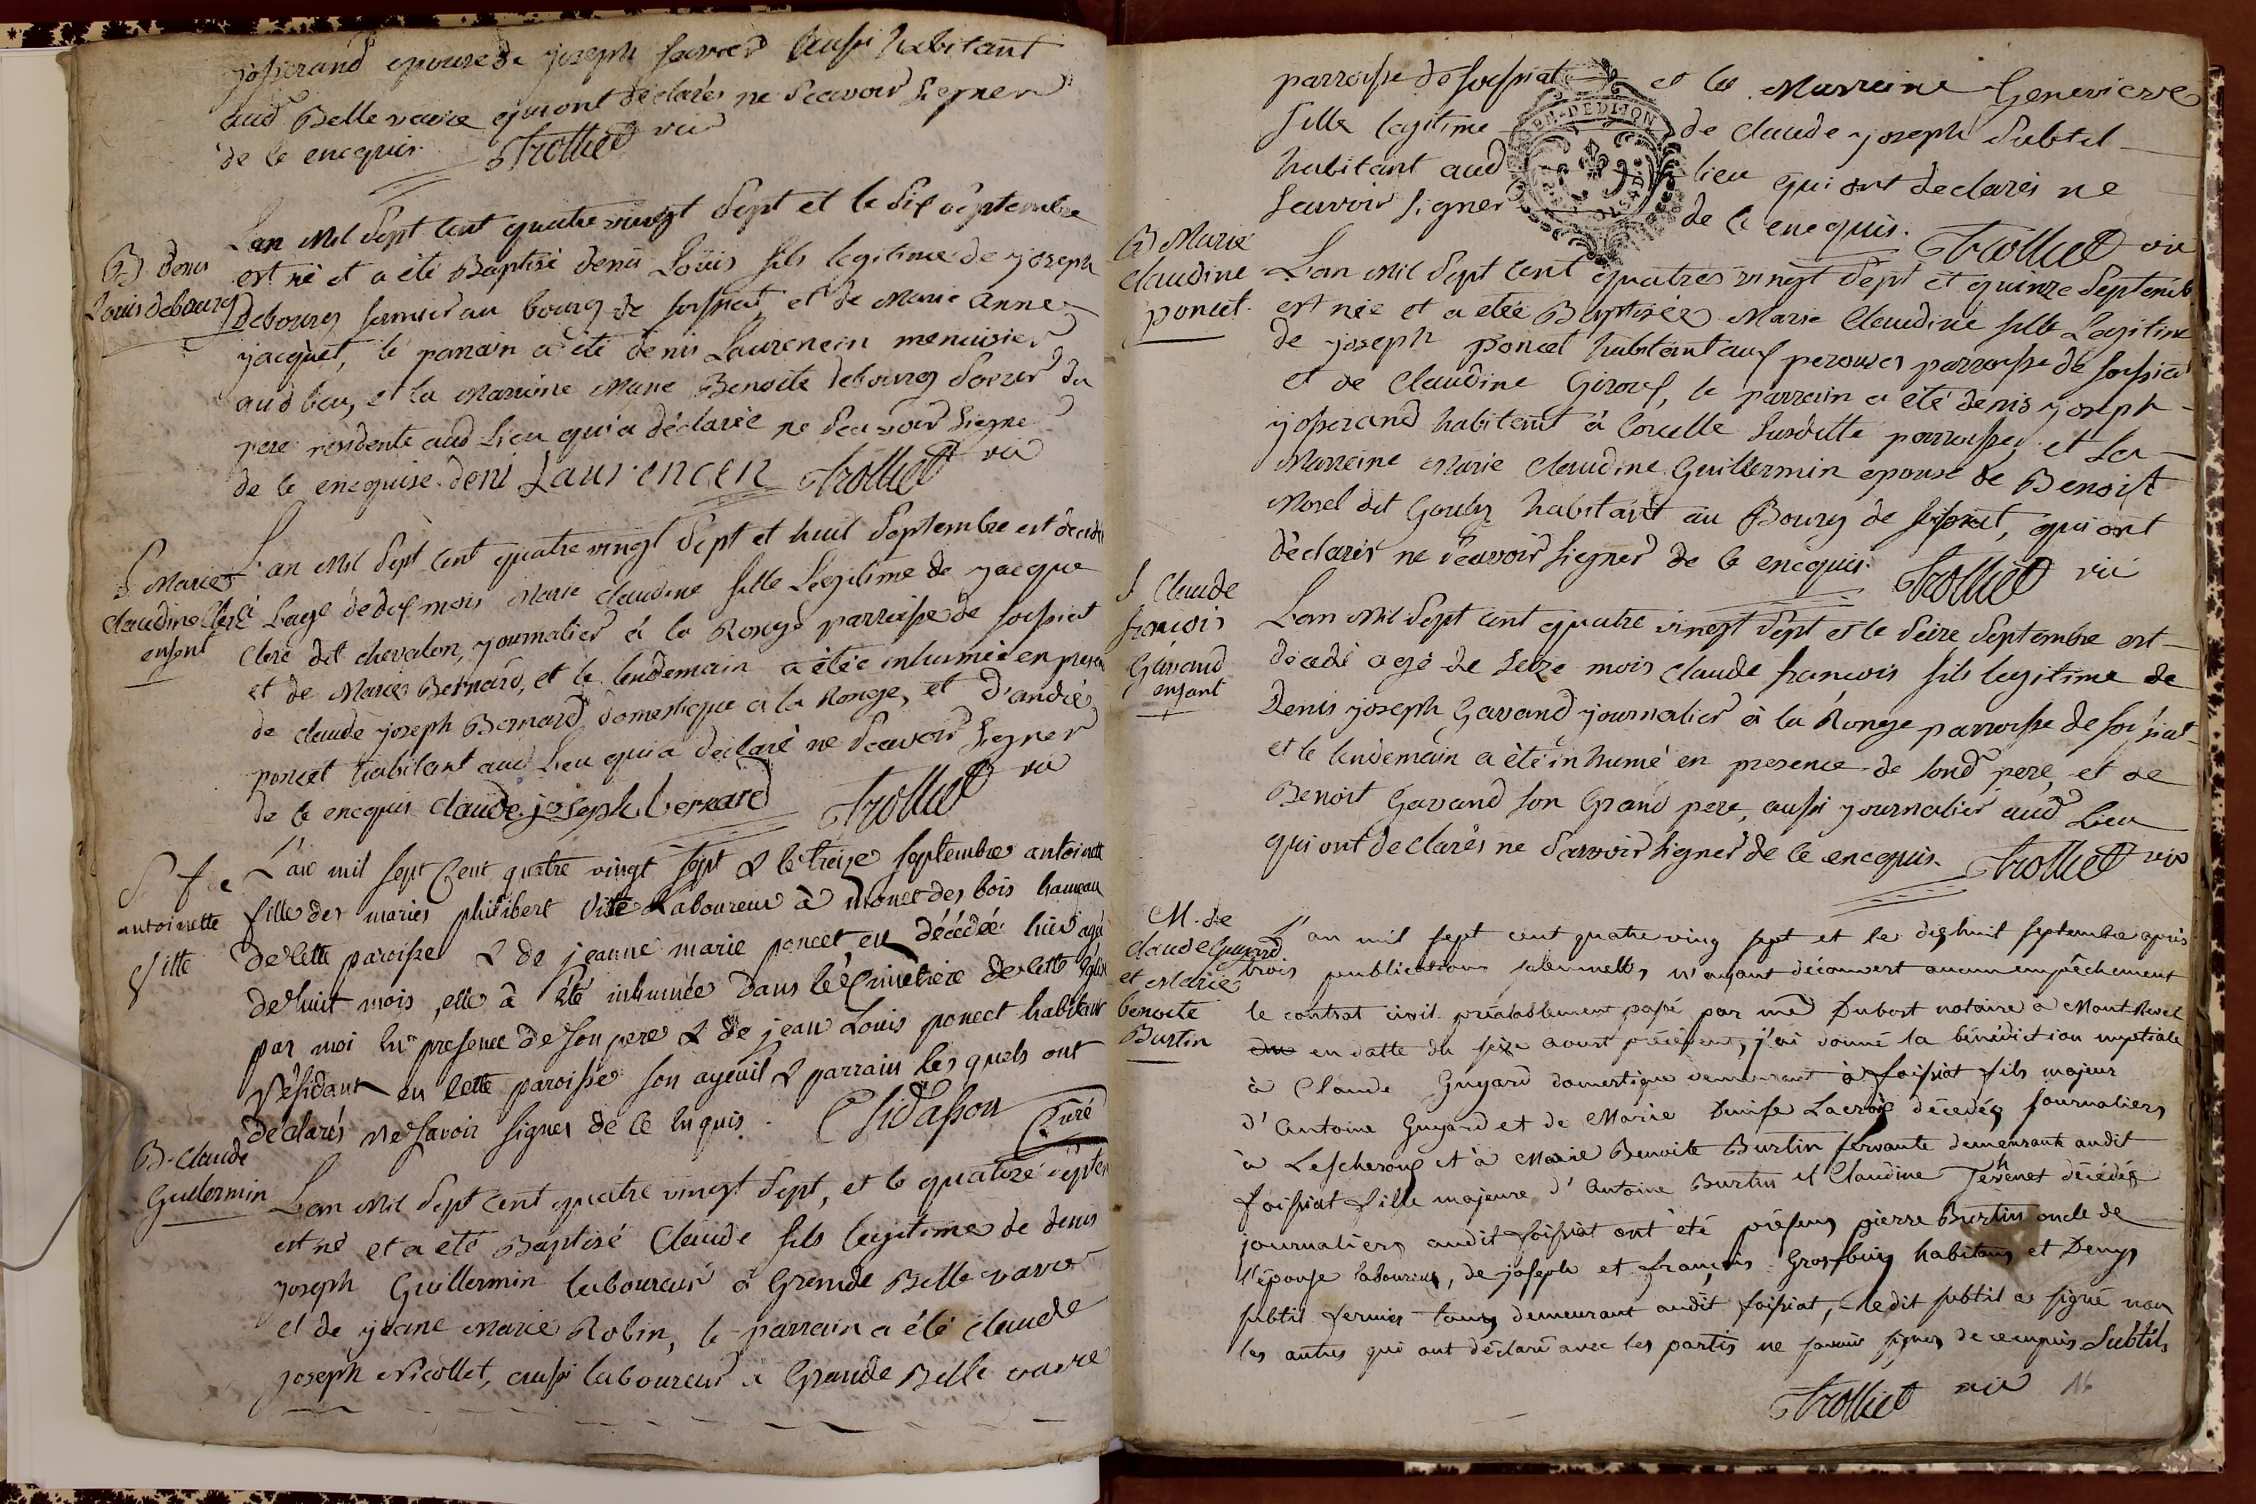 josserand epouse de joseph favier aussi habitant
aud Belle vavre qui ont déclarés ne scavoir signer
de ce encquis. Trolliet vic
L'an mil sept cent quatre vingt sept et le dix septembre
B. denis
Louis debourg
est né et a été Baptisé denis Loüis fils legitime de joseph
debourg fermier au bourg de foissiat et de Marie Anne
jacquet, le parrain a été denis Laurencin menuisier
aud lieu, et la Marraine Marie Benoite debourg soeur du
pere residente aud Lieu qui a déclarée ne scavoir signer
de ce encquise. deni Laurencen Trolliet vic
L'an mil sept cent quatre vingt sept et huit septembre est décédé
S. Marie
Claudine Clerc
enfant
à l'age de dix mois Marie Claudine fille Legitime de jacque
Clerc dit chevalon, journalier à la Ronge parroisse de foissiat
et de Marie Bernard, et le lendemain a étée inhumée en presence
de claude joseph Bernard domestique a la Ronge, et d'andré
poncet habitant aud Lieu qui a déclaré ne scavoir signer
de ce encquis claude joseph bernard Trolliet vic
L'an mil sept Cent quatre vingt sept & le treize septembre antoinette
S. f ce
antoinette
Vitte
fille des mariés philibert Vitte Laboureur à monet des bois hameau
de cette paroisse & de jeanne marie poncet est décédée hier agée
de huit mois, elle à été inhumée dans le Cimetiere de cette église
par moi en presence de son pere & de jean Louis poncet habitant
résidant en cette paroisse son ayeuil & parrain les quels ont
déclarés ne savoir signer de ce enquis. Chidasson Curé
B. Claude
Guilermin
L'an mil sept cent quatre vingt sept, et le quatorze septem
est né et a été Baptisé Claude fils legitime de denis
joseph Guillermin laboureur à Grande Belle vavre
et de jeane Marie Robin, le parrain a été claude
joseph Nicollet, aussi laboureur a Grande Belle vavre
parroisse de foissiat et la Marraine Genevieve
fille legitime de claude joseph Subtil
habitant aud lieu qui ont declarés ne
scavoir signer de ce encquis. Trolliet vic
DE DIJON
B Marie
Claudine
poncet.
L'an mil sept cent quatres vingt sept et quinze septemb
est née et a étée Baptisée Marie Claudine fille Legitime
de joseph poncet habitant aux perouses parroisse de foissiat
et de Claudine Giroux, le parrain a été denis joseph
josserand habitant à Corcelle susditte parroisse, et La
Marreine Marie Claudine Guillermin epouse de Benoist
Morel dit Gouly habitant au Bourg de foissiat, qui ont
déclarés ne scavoir signer de ce encquis. Trolliet vic
S. Claude
françois
Gavand
enfant
L'an mil sept cent quatre vingt sept et le seize septembre est
décédé agé de seize mois claude françois fils legitime de
Denis joseph Gavand journalier à la Ronge parroisse de foissiat
et le lendemain a été inhumé en presence de sond pere, et de
Benoit Gavand son Grand pere, aussi journalier aud Lieu
qui ont declarés ne scavoir signer de ce encquis. Trolliet vic
M. de
claude Guyard
et Marie
benoite
Burtin
L'an mil sept cent quatre ving sept et le dix huit septembre après
trois publications solennelles, n'ayant découvert aucun empêchement
le contrat civil préalablement passé par me Dubost notaire à Mont Revel
en datte du seize aoust précédent, j'ai donné la bénédiction nuptiale
à Claude Guyard domestique demeurant à foissiat fils majeur
d'Antoine Guyard et de Marie Denise Lacroix décedés journaliers
à Lescheroux et à Marie Benoite Burtin servante demeurante audit
foissiat fille majeure d'Antoine Burtin et Claudine Tevenet décédés
journaliers audit foissiat ont été présens pierre Burtin oncle de
l'épouse laboureur, de joseph et françois Grosbuis habitans et Denys
subtil fermier tous demeurant audit foissiat, ledit subtil a signé non
les autres qui ont déclaré avec les partis ne savoir signer de ce enquis Subtil
Trolliet vic 16